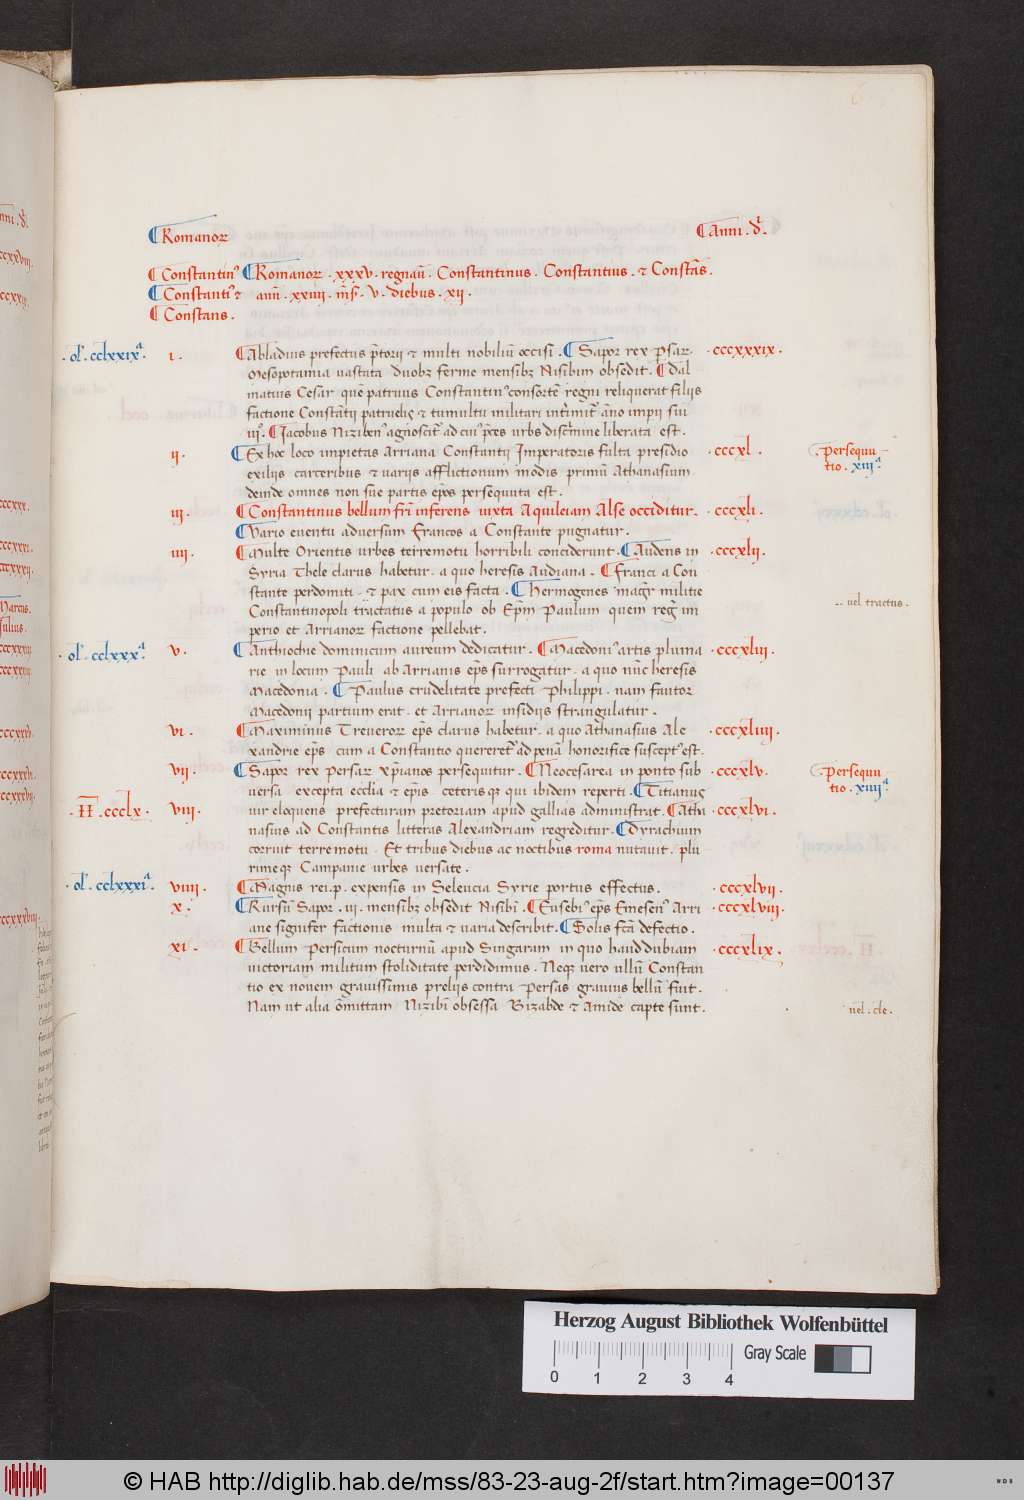 Romanoꝝ
Anni . dī .
Constantinꝰ Romanoꝝ . xxxv . regnaū . Constantinus . Constantius . ⁊ Constās .
Constantiꝰ ⁊ anīī . xxiiii . m̄s̄ . v . diebus . xii .
Constans .
. ol' . cclxxixª . i . Ablavius prefectus p̄torii ⁊ multi nobiliū occisi . Sapor rex Psaꝝ . cccxxxix .
Mesopotamia vastata duobꝫ ferme mensibꝫ Nisibim obsedit . Dal
matius Cesar quē patruus Constantinꝰ consortē regni reliquerat filiis
factione Constātii patruelis ⁊ tumultu militari int̄imit̄ āno imperii sui
iiiº . Iacobus Nizibenꝰ agnoscit̄ ad cuiꝰ p̄ces urbs disc̄mine liberata est .
ii . Ex hoc loco impietas Arriana Constantii Imperatoris fulta presidio . cccxl . Persequu
exiliis carceribus ⁊ variis afflictionum modis primū Athanasium tio . xiiiª
deinde omnes non sue partis ep̄os persequuta est .
iii . Constantinus bellum fr̄i inferens iuxta Aquileiam Alse occiditur . . cccxli .
Vario eventu adversum Francos a Constante pugnatur .
iiii . Multe Orientis urbes terremotu horribili conciderunt . Audens in . cccxlii .
Syria Thele clarus habetur . a quo heresis Audiana . Franci a Con
stante perdomiti . ⁊ pax cum eis facta . Hermogenes mag̅r militie
Constantinopoli tractatus a populo ob Ep̄m Paulum quem reg̅ im .. uel tractus .
perio et Arrianoꝝ factione pellebat .
. ol' . cclxxxª . v . Anthiochie dominicum aureum dedicatur . Macedoniꝰ artis pluma . cccxliii .
rie in locum Pauli ab Arrianis ep̄s surrogatur . a quo nūc heresis
Macedonia . Paulus crudelitate prefecti Philippi . nam fautor
Macedonii partium erat . et Arrianoꝝ insidiis strangulatur .
vi . Maximinus Treveroꝝ ep̄s clarus habetur . a quo Athanasius Ale . cccxliiii .
xandrie ep̄s cum a Constantio quereret̄ ad penā honorifice susceptꝰ est .
vii . Sapor rex Persaꝝ xp̄ianos persequitur . Neocesarea in ponto sub . cccxlv . Persequu
versa excepta ecclīa ⁊ ep̄is ceterisqꝫ qui ibidem reperti . Titianus tio . xiiiiª
. II̅ . cccclx . viii . vir eloquens prefecturam pretoriam apud gallias administrat . Atha . cccxlvi .
nasius ad Constantis litteras Alexandriam regreditur . Dyrachium
corruit terremotu . Et tribus diebus ac noctibus roma nutavit . plu
rimeqꝫ Campanie urbes versate .
. ol' . cclxxxiª . viiii . Magnis rei . p . expensis in Seleucia Syrie portus effectus . . cccxlvii .
x . Rursū Sapor . iii . mensibꝫ obsedit Nisibī . Eusebiꝰ ep̄s Emesenꝰ Arri . cccxlviii .
ane signifer factionis multa ⁊ varia describit . Solis fcā defectio .
xi . Bellum Persicum nocturnū apud Singaram in quo haud dubiam . cccxlix .
victoriam militum stoliditate perdidimus . Neqꝫ vero ullū Constan
tio ex novem gravissimis preliis contra Persas gravius bellū fuit .
Nam ut alia ōmittam Nizibi obsessa Bizabde ⁊ Amide capte sunt . uel . cle .
Herzog August Bibliothek Wolfenbüttel
Gray Scale
0 1 2 3 4
© HAB http://diglib.hab.de/mss/83-23-aug-2f/start.htm?image=00137